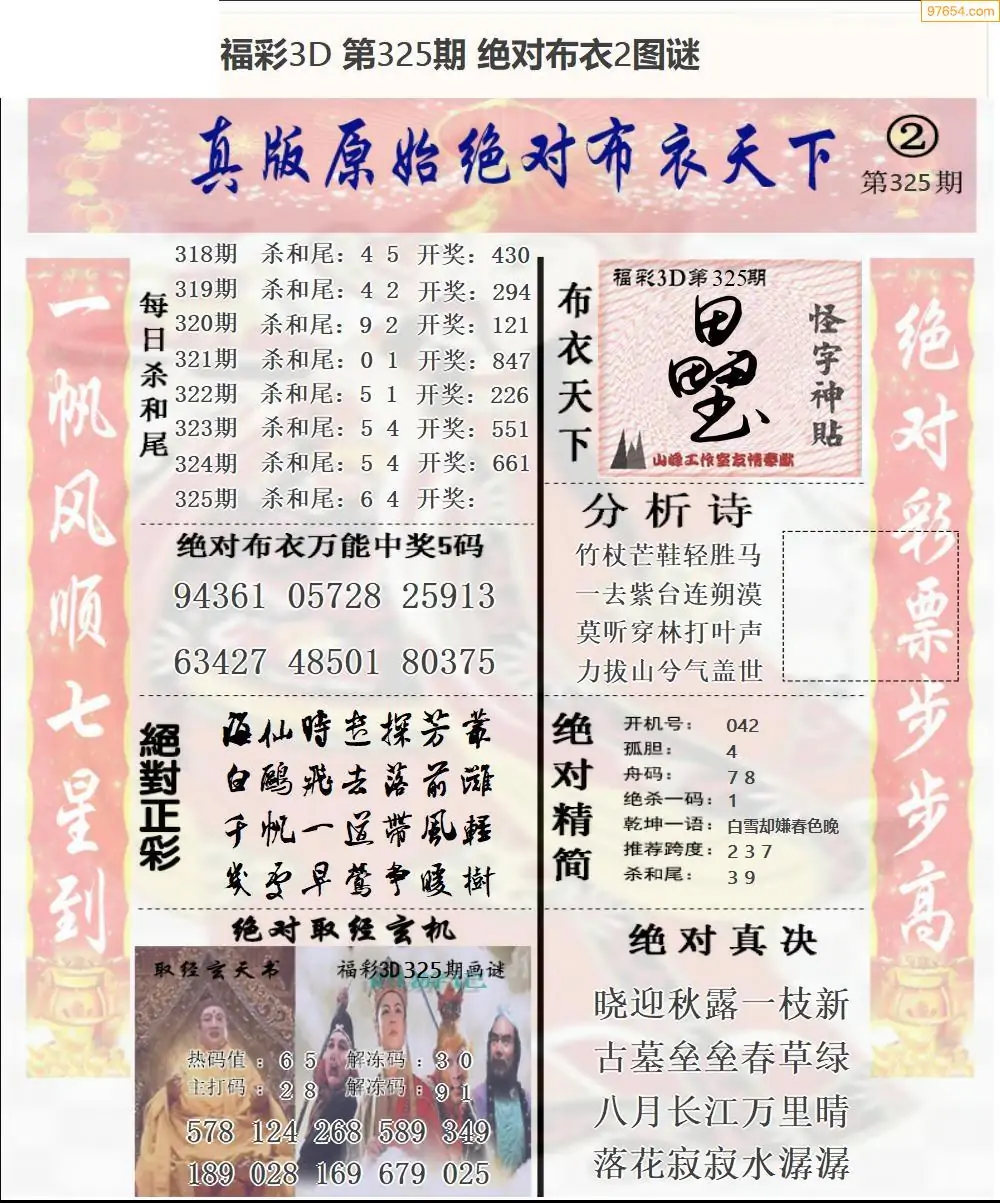 97654.com
福彩3D 第325期 绝对布衣2图谜
真版原始绝对布衣天下
②
第325期
一帆风顺七星到
每日杀和尾
318期 杀和尾：4 5 开奖：430
319期 杀和尾：4 2 开奖：294
320期 杀和尾：9 2 开奖：121
321期 杀和尾：0 1 开奖：847
322期 杀和尾：5 1 开奖：226
323期 杀和尾：5 4 开奖：551
324期 杀和尾：5 4 开奖：661
325期 杀和尾：6 4 开奖：
绝对布衣万能中奖5码
94361 05728 25913
63427 48501 80375
絕對正彩
海仙時遣探芳叢
白鷗飛去落前灘
千帆一道帶風輕
幾處早鶯爭暖樹
绝对取经玄机
取经玄天书
福彩3D325期画谜
热码值：6 5 解冻码：3 0
主打码：2 8 解冻码：9 1
578 124 268 589 349
189 028 169 679 025
布衣天下
福彩3D第325期
怪字神贴
山峰工作室友情奉献
分析诗
竹杖芒鞋轻胜马
一去紫台连朔漠
莫听穿林打叶声
力拔山兮气盖世
绝对精简
开机号： 042
孤胆： 4
舟码： 7 8
绝杀一码：1
乾坤一语：白雪却嫌春色晚
推荐跨度：2 3 7
杀和尾： 3 9
绝对真决
晓迎秋露一枝新
古墓垒垒春草绿
八月长江万里晴
落花寂寂水潺潺
绝对彩票步步高